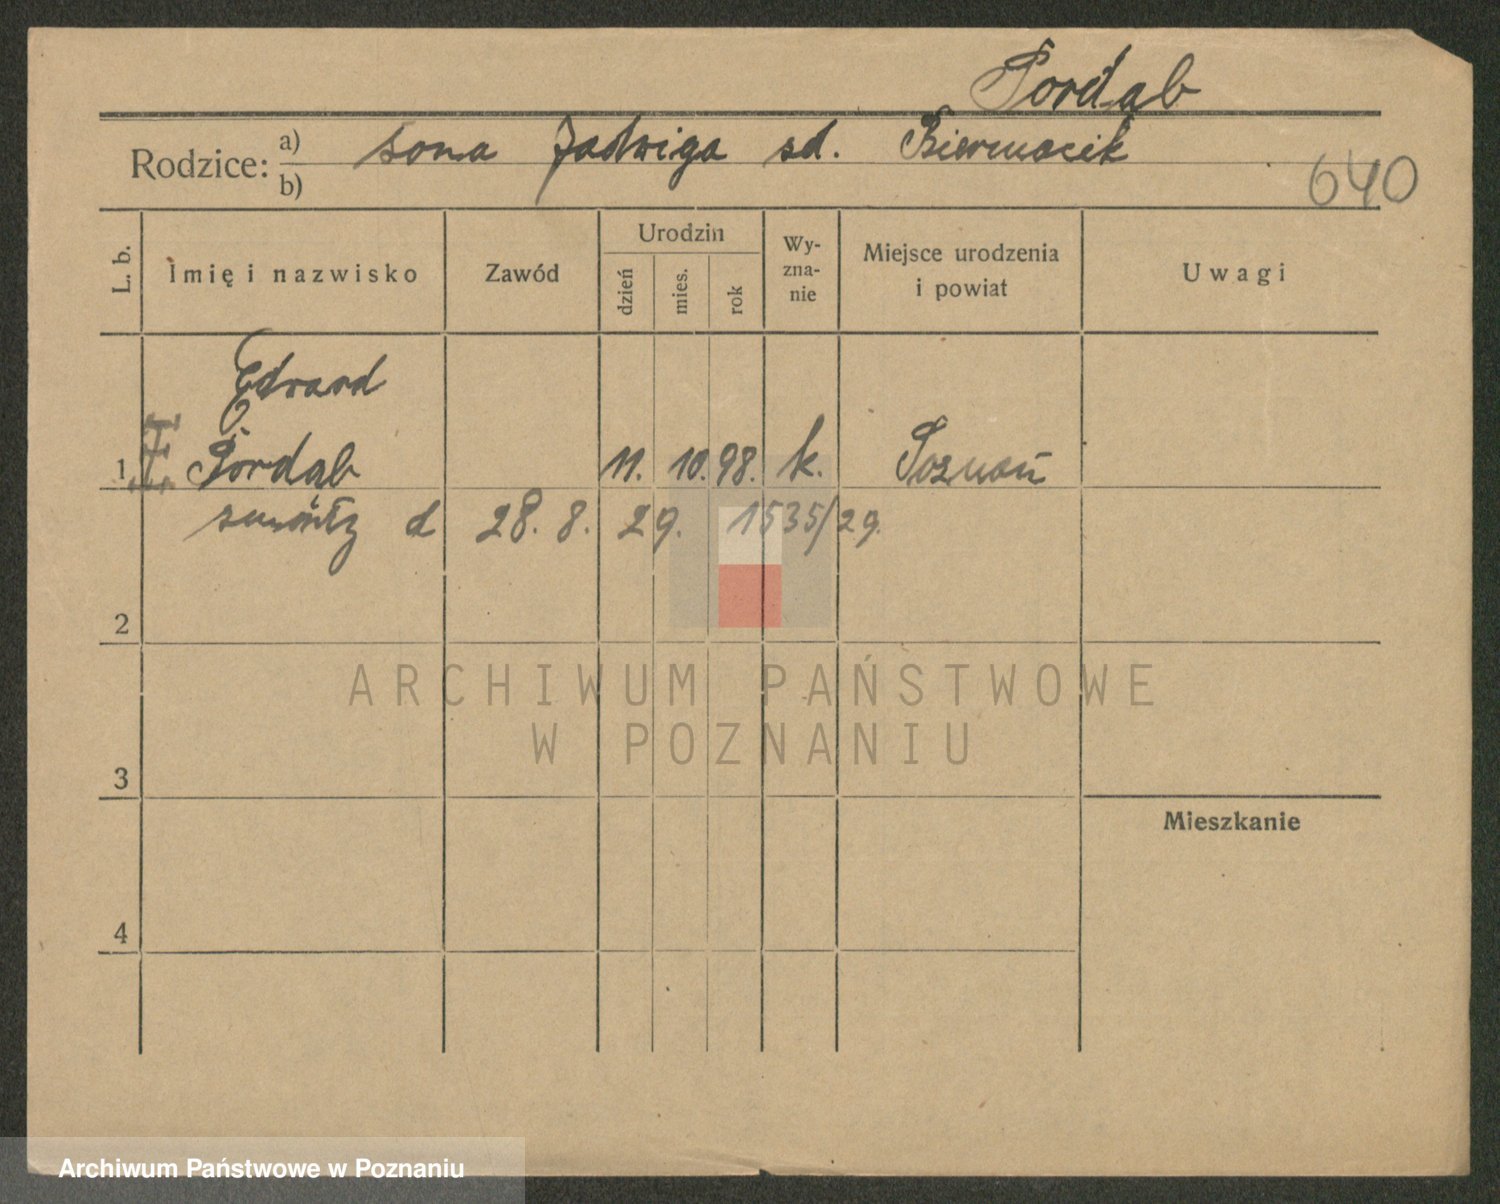 Pordąb
Rodzice: a) żona Jadwiga zd. Biermacik
b)
640
L. b.
Imię i nazwisko
Zawód
Urodzin
dzień
mies.
rok
Wy-
zna-
nie
Miejsce urodzenia
i powiat
Uwagi
Edward
1 Pordąb 11. 10. 98. k. Poznań
d 28. 8. 29. 1535/29.
2
3
Mieszkanie
4
ARCHIWUM PAŃSTWOWE
W POZNANIU
Archiwum Państwowe w Poznaniu